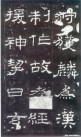 狩獲麟為漢
制作故孝經
援神挈曰玄